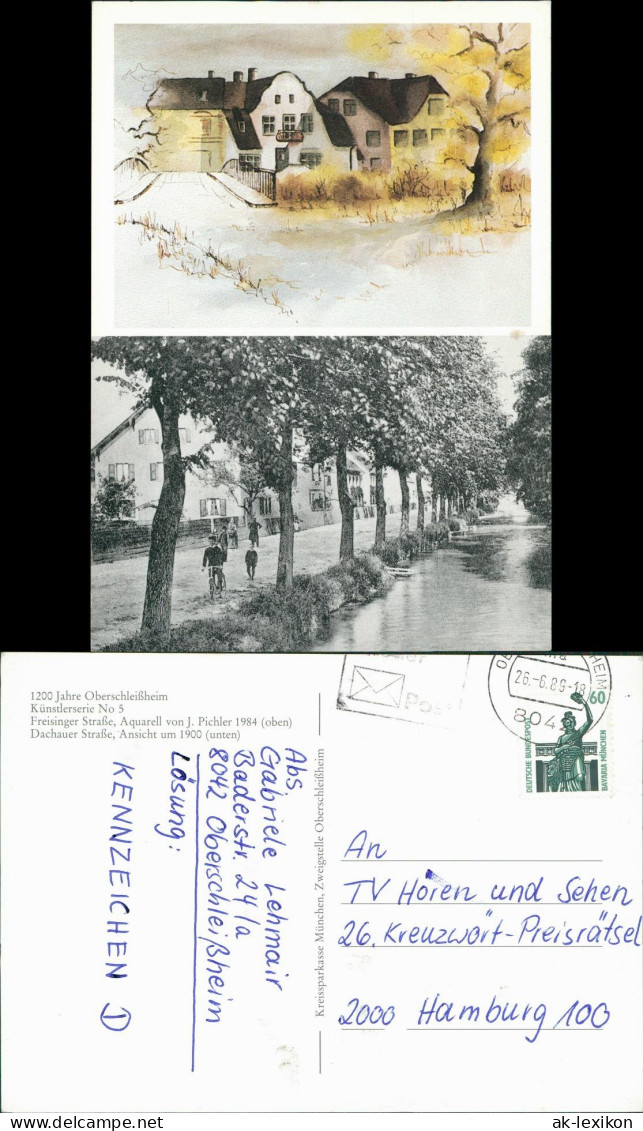 1200 Jahre Oberschleißheim
Künstlerserie No 5
Freisinger Straße, Aquarell von J. Pichler 1984 (oben)
Dachauer Straße, Ansicht um 1900 (unten)
Abs
Gabriele Lehmair
Baderstr. 24/a
8042 Oberschleißheim
Lösung:
KENNZEICHEN 1
Kreissparkasse München, Zweigstelle Oberschleißheim
Post!
26.-6.89-18
804
60
DEUTSCHE BUNDESPOST
BAVARIA MÜNCHEN
An
TV Hören und Sehen
26. Kreuzwort-Preisrätsel
2000 Hamburg 100
www.delcampe.net
ak-lexikon